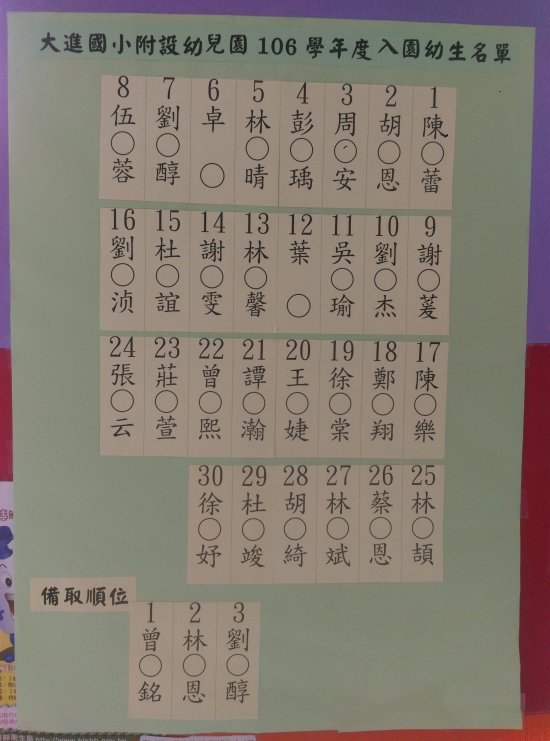 大進國小附設幼兒園 106 學年度入園幼生名單
1 陳○蕾
2 胡○恩
3 周○安
4 彭○瑀
5 林○晴
6 卓○
7 劉○醇
8 伍○蓉
9 謝○蓤
10 劉○杰
11 吳○瑜
12 葉○
13 林○馨
14 謝○雯
15 杜○誼
16 劉○浈
17 陳○樂
18 鄭○翔
19 徐○棠
20 王○婕
21 譚○瀚
22 曾○熙
23 莊○萱
24 張○云
25 林○頡
26 蔡○恩
27 林○斌
28 胡○綺
29 杜○竣
30 徐○妤
備取順位
1 曾○銘
2 林○恩
3 劉○醇